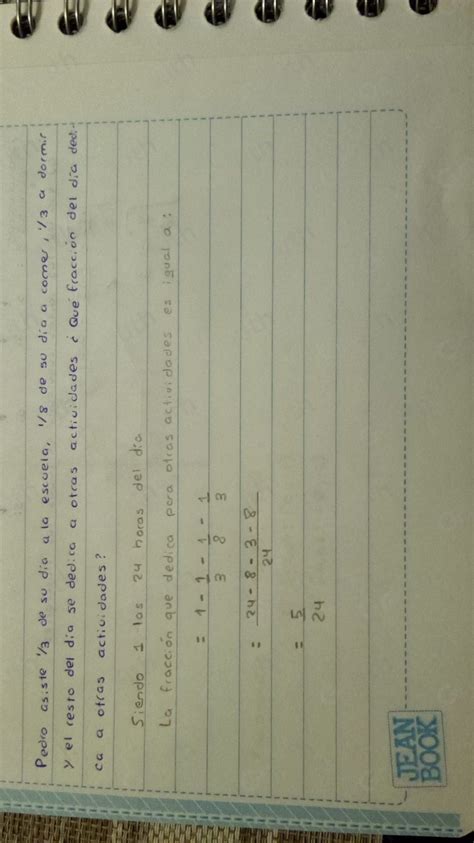 Pedro asiste 1/3 de su día a la escuela, 1/8 de su día a comer, 1/3 a dormir
y el resto del día se dedica a otras actividades ¿Qué fracción del día dedi-
ca a otras actividades?
Siendo 1 las 24 horas del día
La fracción que dedica para otras actividades es igual a:
= 1 - 1/3 - 1/8 - 1/3
= 24 - 8 - 3 - 8 / 24
= 5/24
JEAN
BOOK